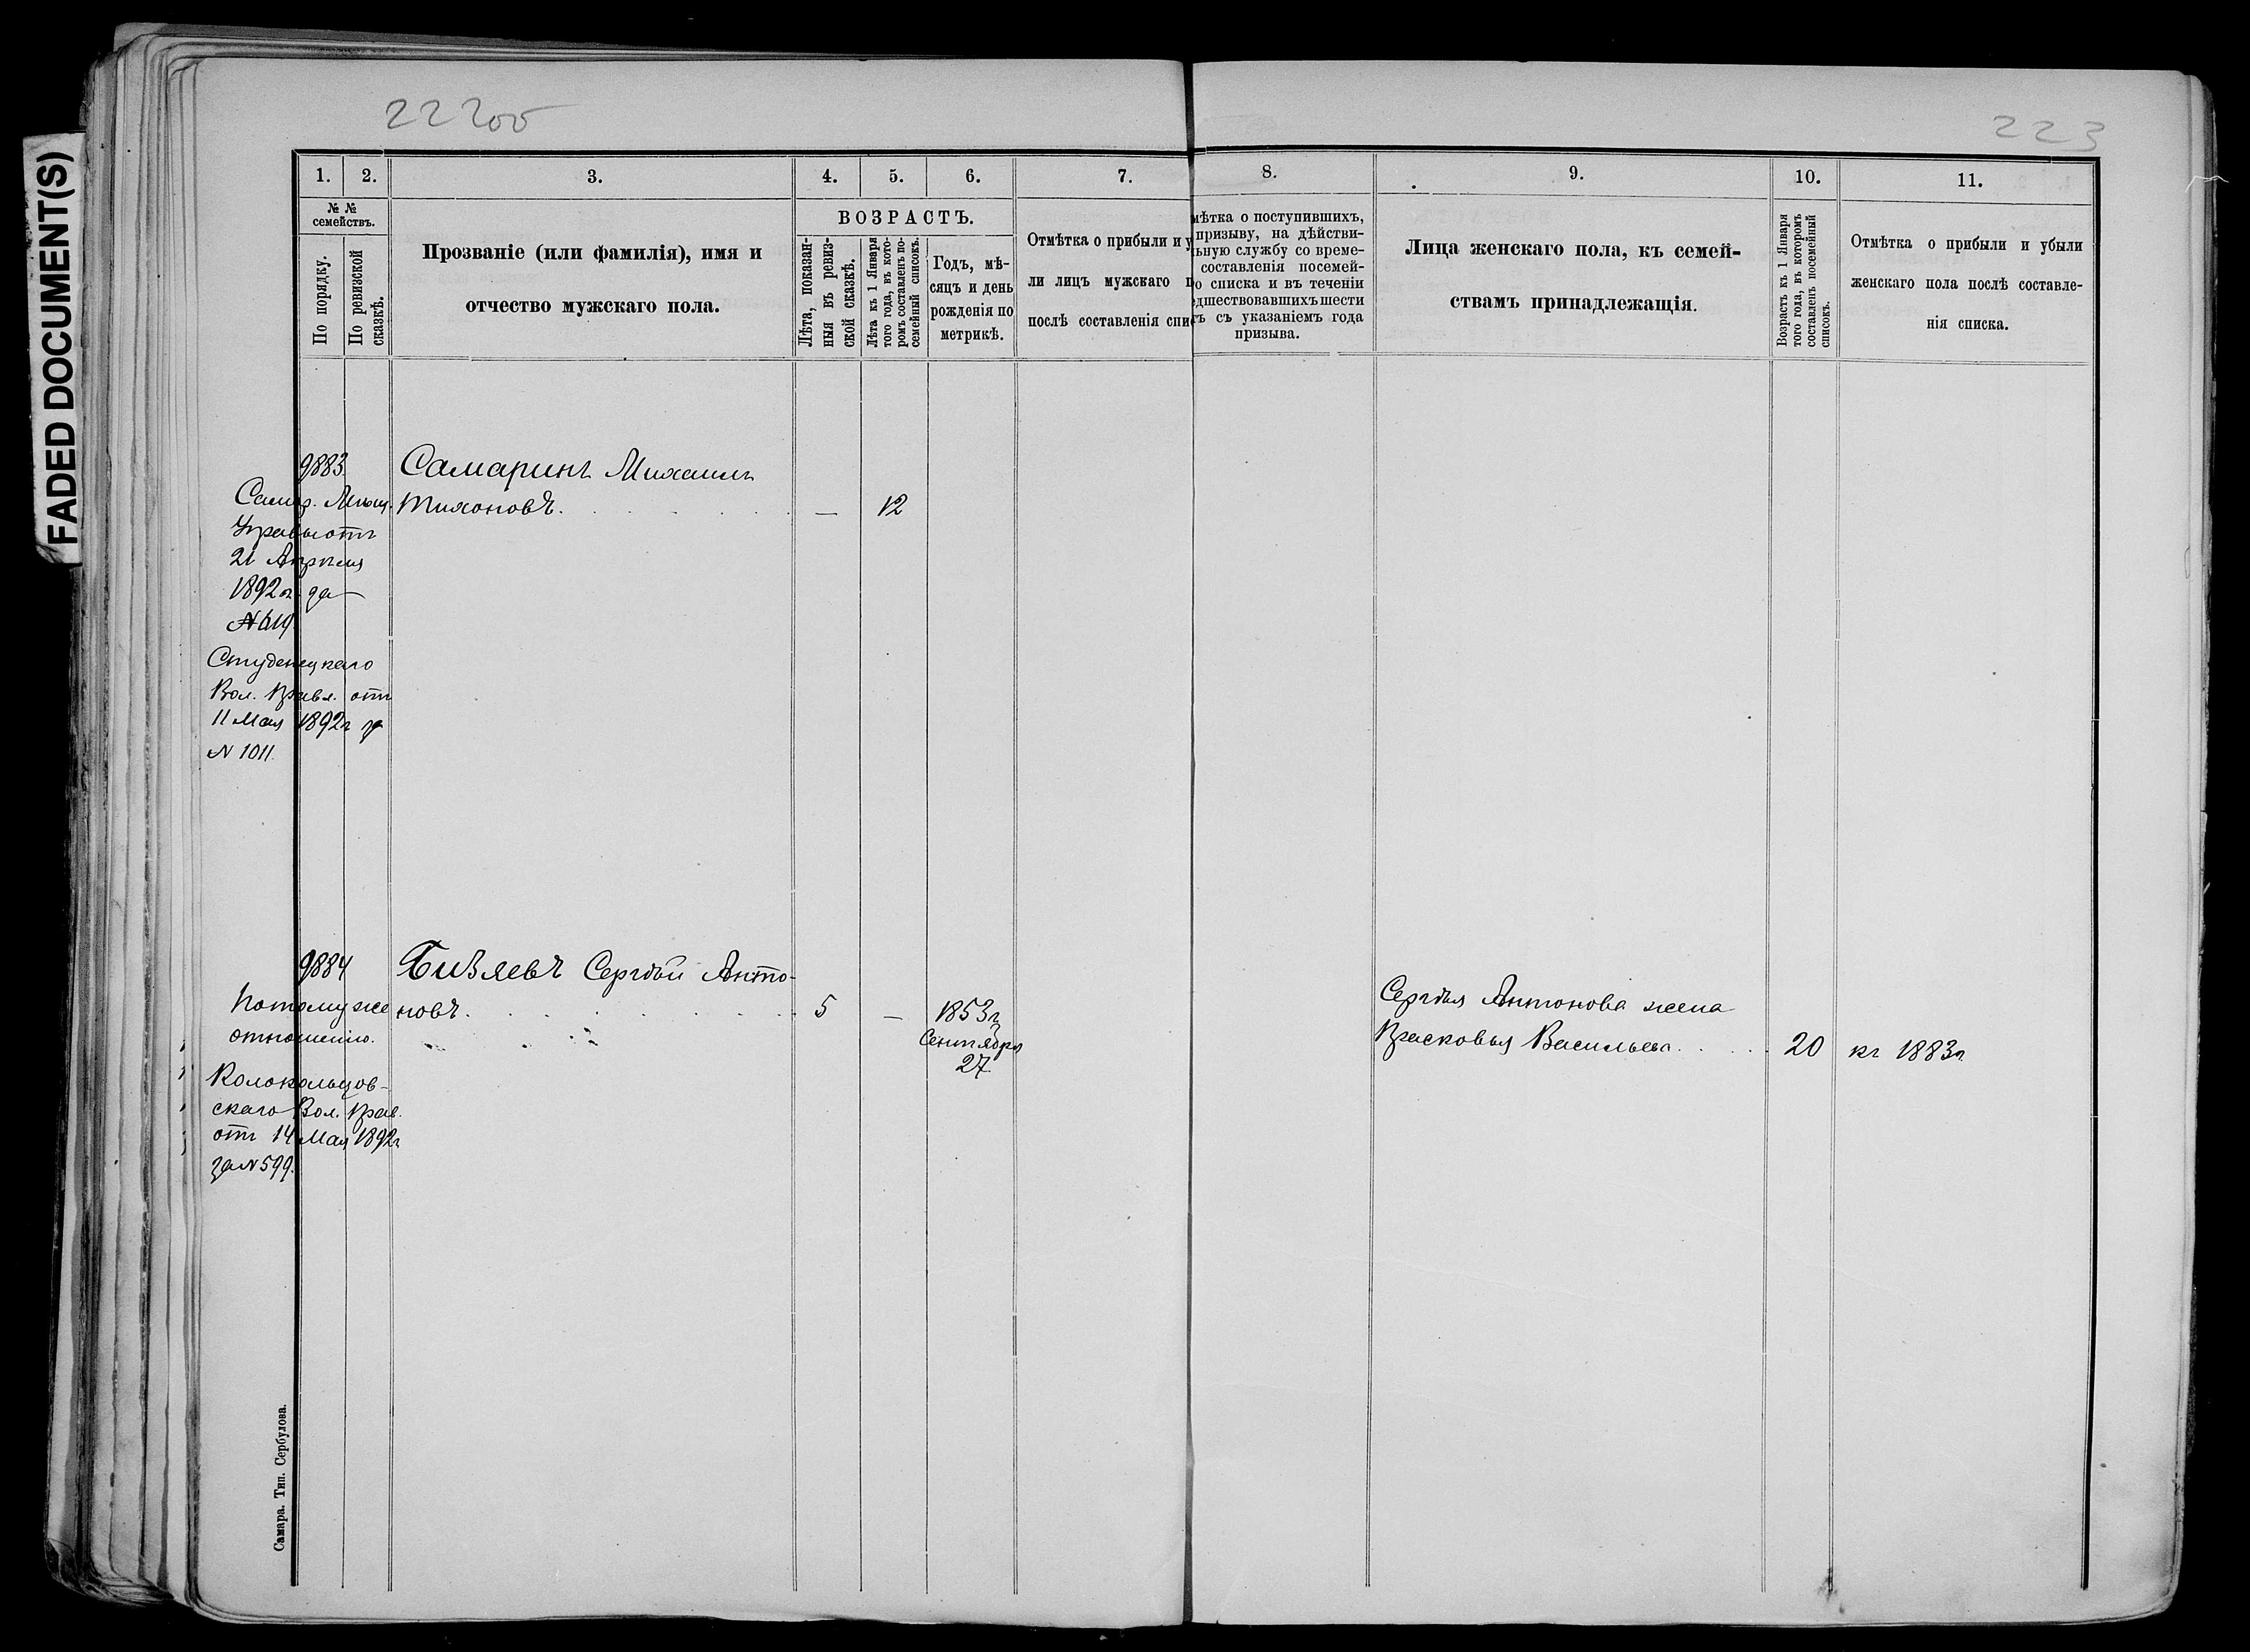 FADED DOCUMENT(S)
22 2об
223
1. 2. 3. 4. 5. 6. 7. 8. 9. 10. 11.
№ №
семействъ.
По порядку.
По ревизской
сказкѣ.
Прозваніе (или фамилія), имя и
отчество мужскаго пола.
ВОЗРАСТЪ.
Лѣта, показан-
ныя въ ревиз-
ской сказкѣ.
Лѣта къ 1 Января
того года, въ кото-
ромъ составленъ по-
семейный списокъ.
Годъ, мѣ-
сяцъ и день
рожденія по
метрикѣ.
Отмѣтка о прибыли и у
ли лицъ мужскаго п
послѣ составленія спи
мѣтка о поступившихъ,
призыву, на дѣйстви-
ьную службу со време-
составленія посемей-
о списка и въ теченіи
едшествовавшихъ шести
ъ съ указаніемъ года
призыва.
Лица женскаго пола, къ семей-
ствамъ принадлежащія.
Возрастъ къ 1 Января
того года, въ которомъ
составленъ посемейный
списокъ.
Отмѣтка о прибыли и убыли
женскаго пола послѣ составле-
нія списка.
9883
Самар. Мѣщ.
Управы отъ
21 Апрѣля
1892 г. за
№ 619
Студенецкаго
Вол. Правл. отъ
11 Мая 1892г за
№ 1011.
Самаринъ Михаилъ
Тихоновъ. — 12
9884
Потому же
отношенію.
Колокольцов-
скаго Вол. Прав.
отъ 14 Мая 1892г
за № 599.
Бизяевъ Сергѣй Анто-
новъ. 5 — 1853г.
Сентября
27.
Сергѣя Антонова жена
Прасковья Васильева. 20 къ 1883г.
Самара. Тип. Сербулова.